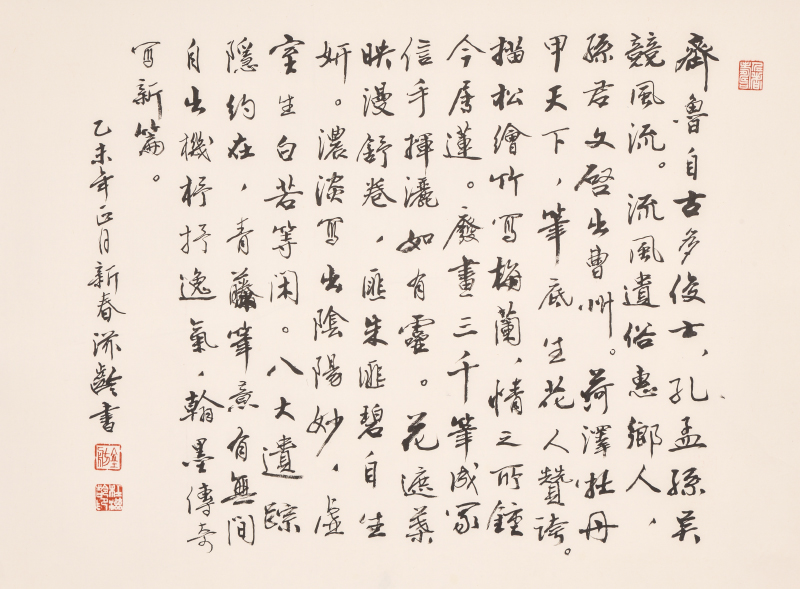 齊魯自古多俊士、孔孟孫吳
競風流。流風遺俗惠鄉人，
孫君文啓出曹州。荷澤牡丹
甲天下，筆底生花人贊誇。
描松繪竹寫梅蘭，情之所鍾
今屬蓮。廢畫三千筆成冢
信手揮灑如有靈。花遮葉
映漫舒卷，匪朱匪碧自生
妍。濃淡寫出陰陽妙，虛
室生白若等閑。八大遺踪
隱約在，青藤筆意有無間
自出機杼抒逸氣，翰墨傳奇
寫新篇。
乙未年正月新春 齡書